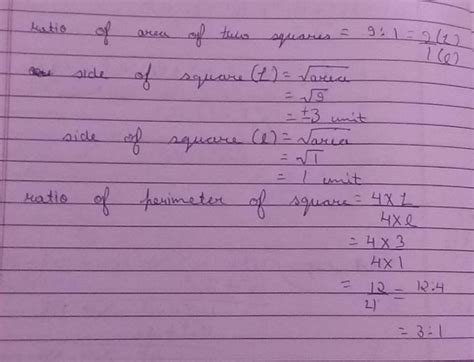 ratio of area of two squares = 9:1 = 9(L)/1(l)
side of square (L) = √area
= √9
= ±3 unit
side of square (l) = √area
= √1
= 1 unit
ratio of perimeter of square = 4×L/4×l
= 4×3/4×1
= 12/4 = 12:4
= 3:1